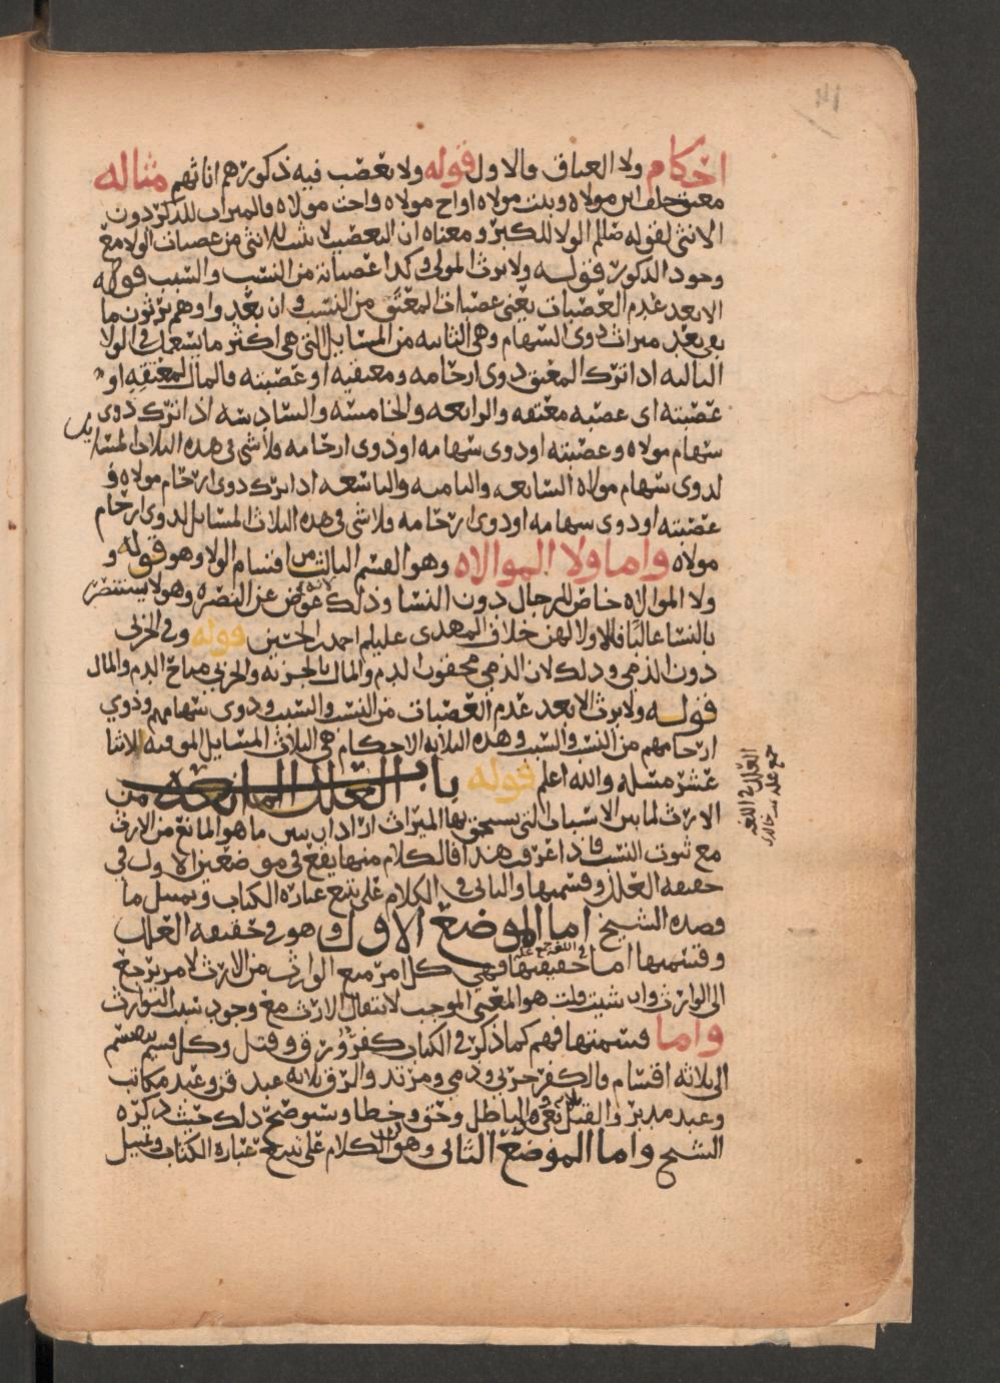 احكام ولا العتاق والاول قوله ولا تعصب فيه ذكورهم اناثهم مثاله
معتق خلف ابن مولاه وبنت مولاه او اخ مولاه واخت مولاه فالميراث للذكر دون
الانثى لقوله صللم الولا للكبر ومعناه ان التعصيب لا يثبت للانثى من عصبات الولا مع
وجود الذكور قوله ولا يرث المولى وكذا عصباته من النسب والسبب قوله
الا بعد عدم العصبات يعني عصبات المعتق من النسب وان بعدوا وهم يرثون ما
بقي بعد ميراث ذوي السهام وهي الثانيه من المسايل التي هي اكثر ما يستعمل في الولا
الثالثه اذا ترك المعتق ذوي ارحامه ومعتقيه او عصبته فالمال لمعتقه او
عصبته اي عصبه معتقه والرابعه والخامسه والسادسه اذا ترك ذوي
سهام مولاه وعصبته او ذوي سهامه او ذوي ارحامه فلا شي في هذه الثلاث المسايل
لذوي سهام مولاه السابعه والثامنه والتاسعه اذا ترك ذوي ارحام مولاه و
عصبته او ذوي سهامه او ذوي ارحامه فلا شي في هذه الثلاث المسايل لذوي ارحام
مولاه واما ولا الموالاه وهو القسم الثالث من اقسام الولا وهو قوله و
ولا الموالاه خاص للرجال دون النسا وذلك لانه عوض عن النصره وهو لا يستنصر
بالنسا غالبا فلا ولا لهن خلاف المهدي عليلم احمد بن الحسين قوله وفي الحربي
دون الذمي وذلك لان الذمي محقون الدم والمال بالجزيه والحربي مباح الدم والمال
قوله ولا يرث الا بعد عدم العصبات من النسب والسبب وذوي سهامهم وذوي
ارحامهم من النسب والسبب وهذه الثلاثه الاحكام هي الثلاث المسايل الموفيه الاثنا
عشر مسله والله اعلم قوله باب العلل المانعه من
الارث لما بين الاسباب التي يستحق بها الميراث اراد ان يبين ما هو المانع من الارث
مع ثبوت النسب فاذا عرفت هذا فالكلام منها يقع في موضعين الاول في
حقيقه العلل وقسمتها والثاني في الكلام على تتبع عبارة الكتاب وتمثيل ما
قصده الشيخ اما الموضع الاول وهو في حقيقه العلل
وقسمتها اما حقيقتها فهي كل امر منع الوارث من الارث لامر يرجع
الى الوارث وان شيت قلت هو المعنى الموجب لانتقال الارث مع وجود سبب التوارث
واما قسمتها فهم كما ذكر في الكتاب كفر ورق وقتل وكل قسم ينقسم
الى ثلاثه اقسام فالكفر حربي وذمي ومرتد والرق ثلاثه عبد قن وعبد مكاتب
وعبد مدبر والقتل ثلاثه وهو الباطل وحق وخطا وسيوضح ذلك حيث ذكره
الشيخ واما الموضع الثاني وهو في الكلام على تتبع عبارة الكتاب وتمثيل
العلل في اللغه
جمع عله